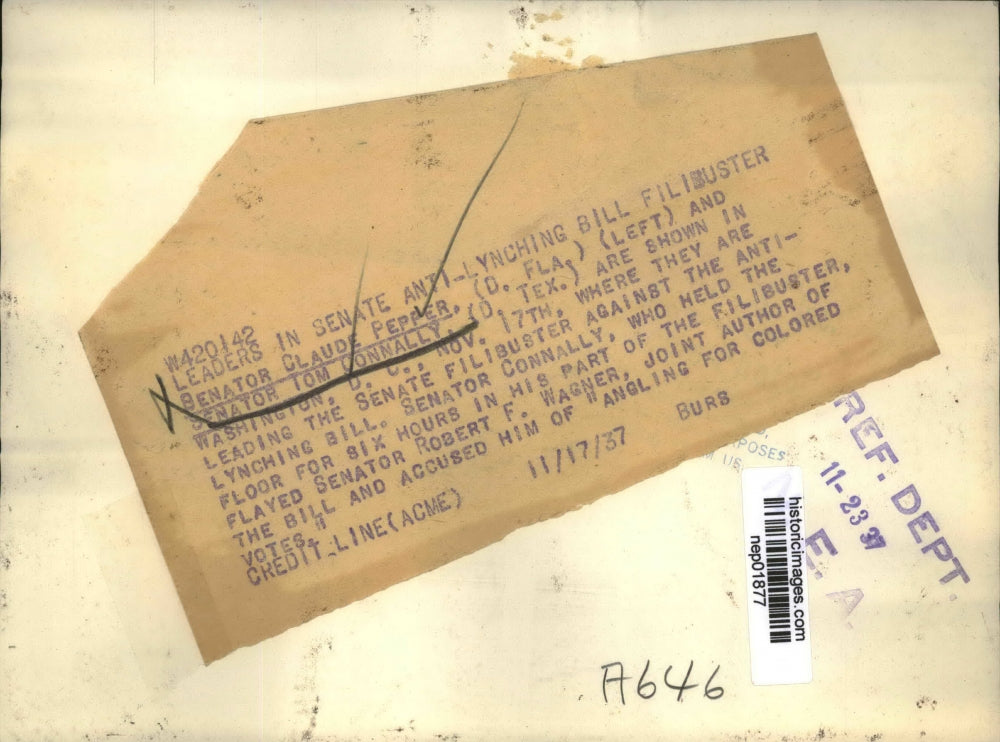 W420142
LEADERS IN SENATE ANTI-LYNCHING BILL FILIBUSTER
SENATOR CLAUDE PEPPER, (D. FLA.) (LEFT) AND
SENATOR TOM CONNALLY, (D. TEX.) ARE SHOWN IN
WASHINGTON, D. C., NOV. 17TH, WHERE THEY ARE
LEADING THE SENATE FILIBUSTER AGAINST THE ANTI-
LYNCHING BILL. SENATOR CONNALLY, WHO HELD THE
FLOOR FOR SIX HOURS IN HIS PART OF THE FILIBUSTER,
FLAYED SENATOR ROBERT F. WAGNER, JOINT AUTHOR OF
THE BILL AND ACCUSED HIM OF "ANGLING FOR COLORED
VOTES."
CREDIT LINE(ACME) 11/17/37 BURS
REF. DEPT.
11-23 37
N. E. A.
historicimages.com
nep01877
A646